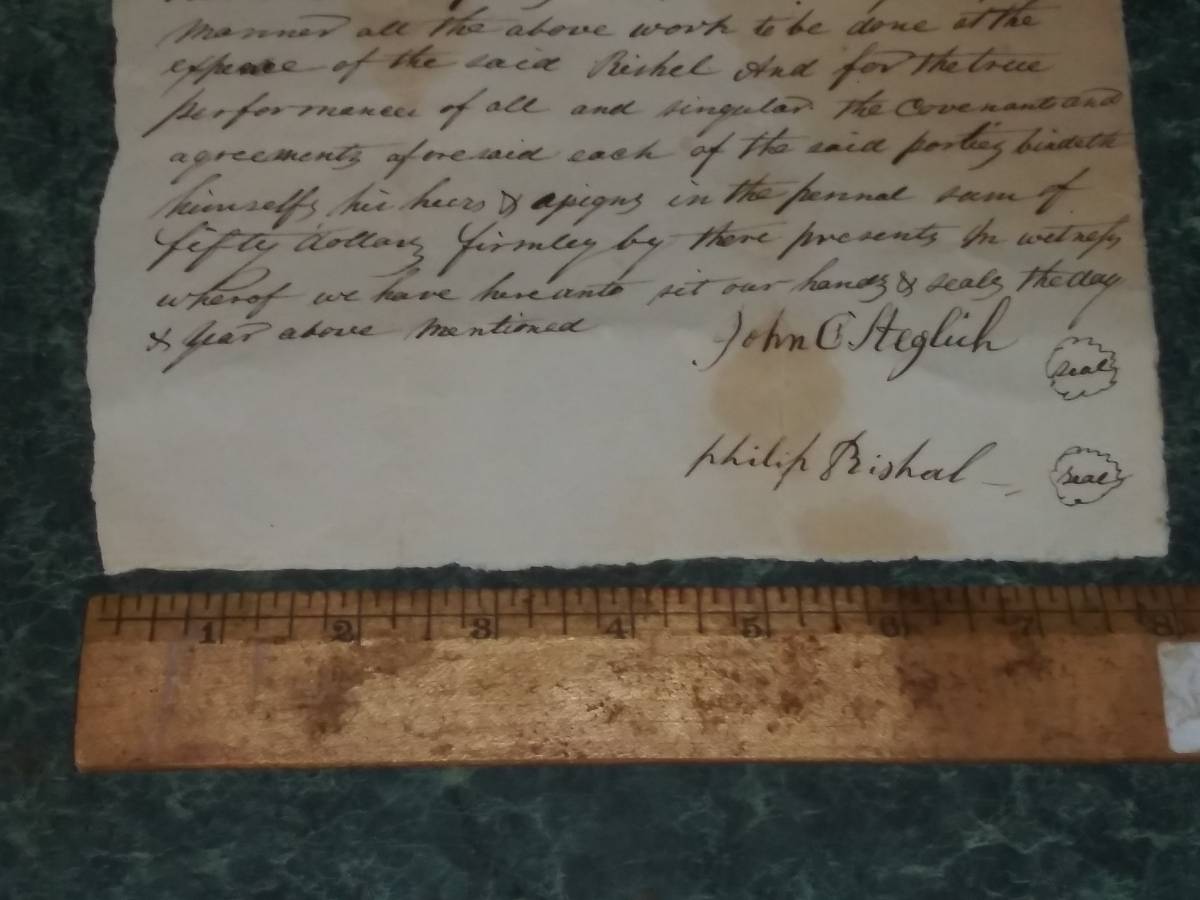 manner all the above work to be done at the
expence of the said Rishel And for the true
performance of all and singular the Covenant and
agreements aforesaid each of the said parties bindeth
himselfs his heirs & assigns in the pennal sum of
fifty dollars firmley by these presents In witness
wherof we have hereunto sit our hands & seals the day
& year above mentioned
John C Steglich seal
philip Rishal seal
1 2 3 4 5 6 7 8